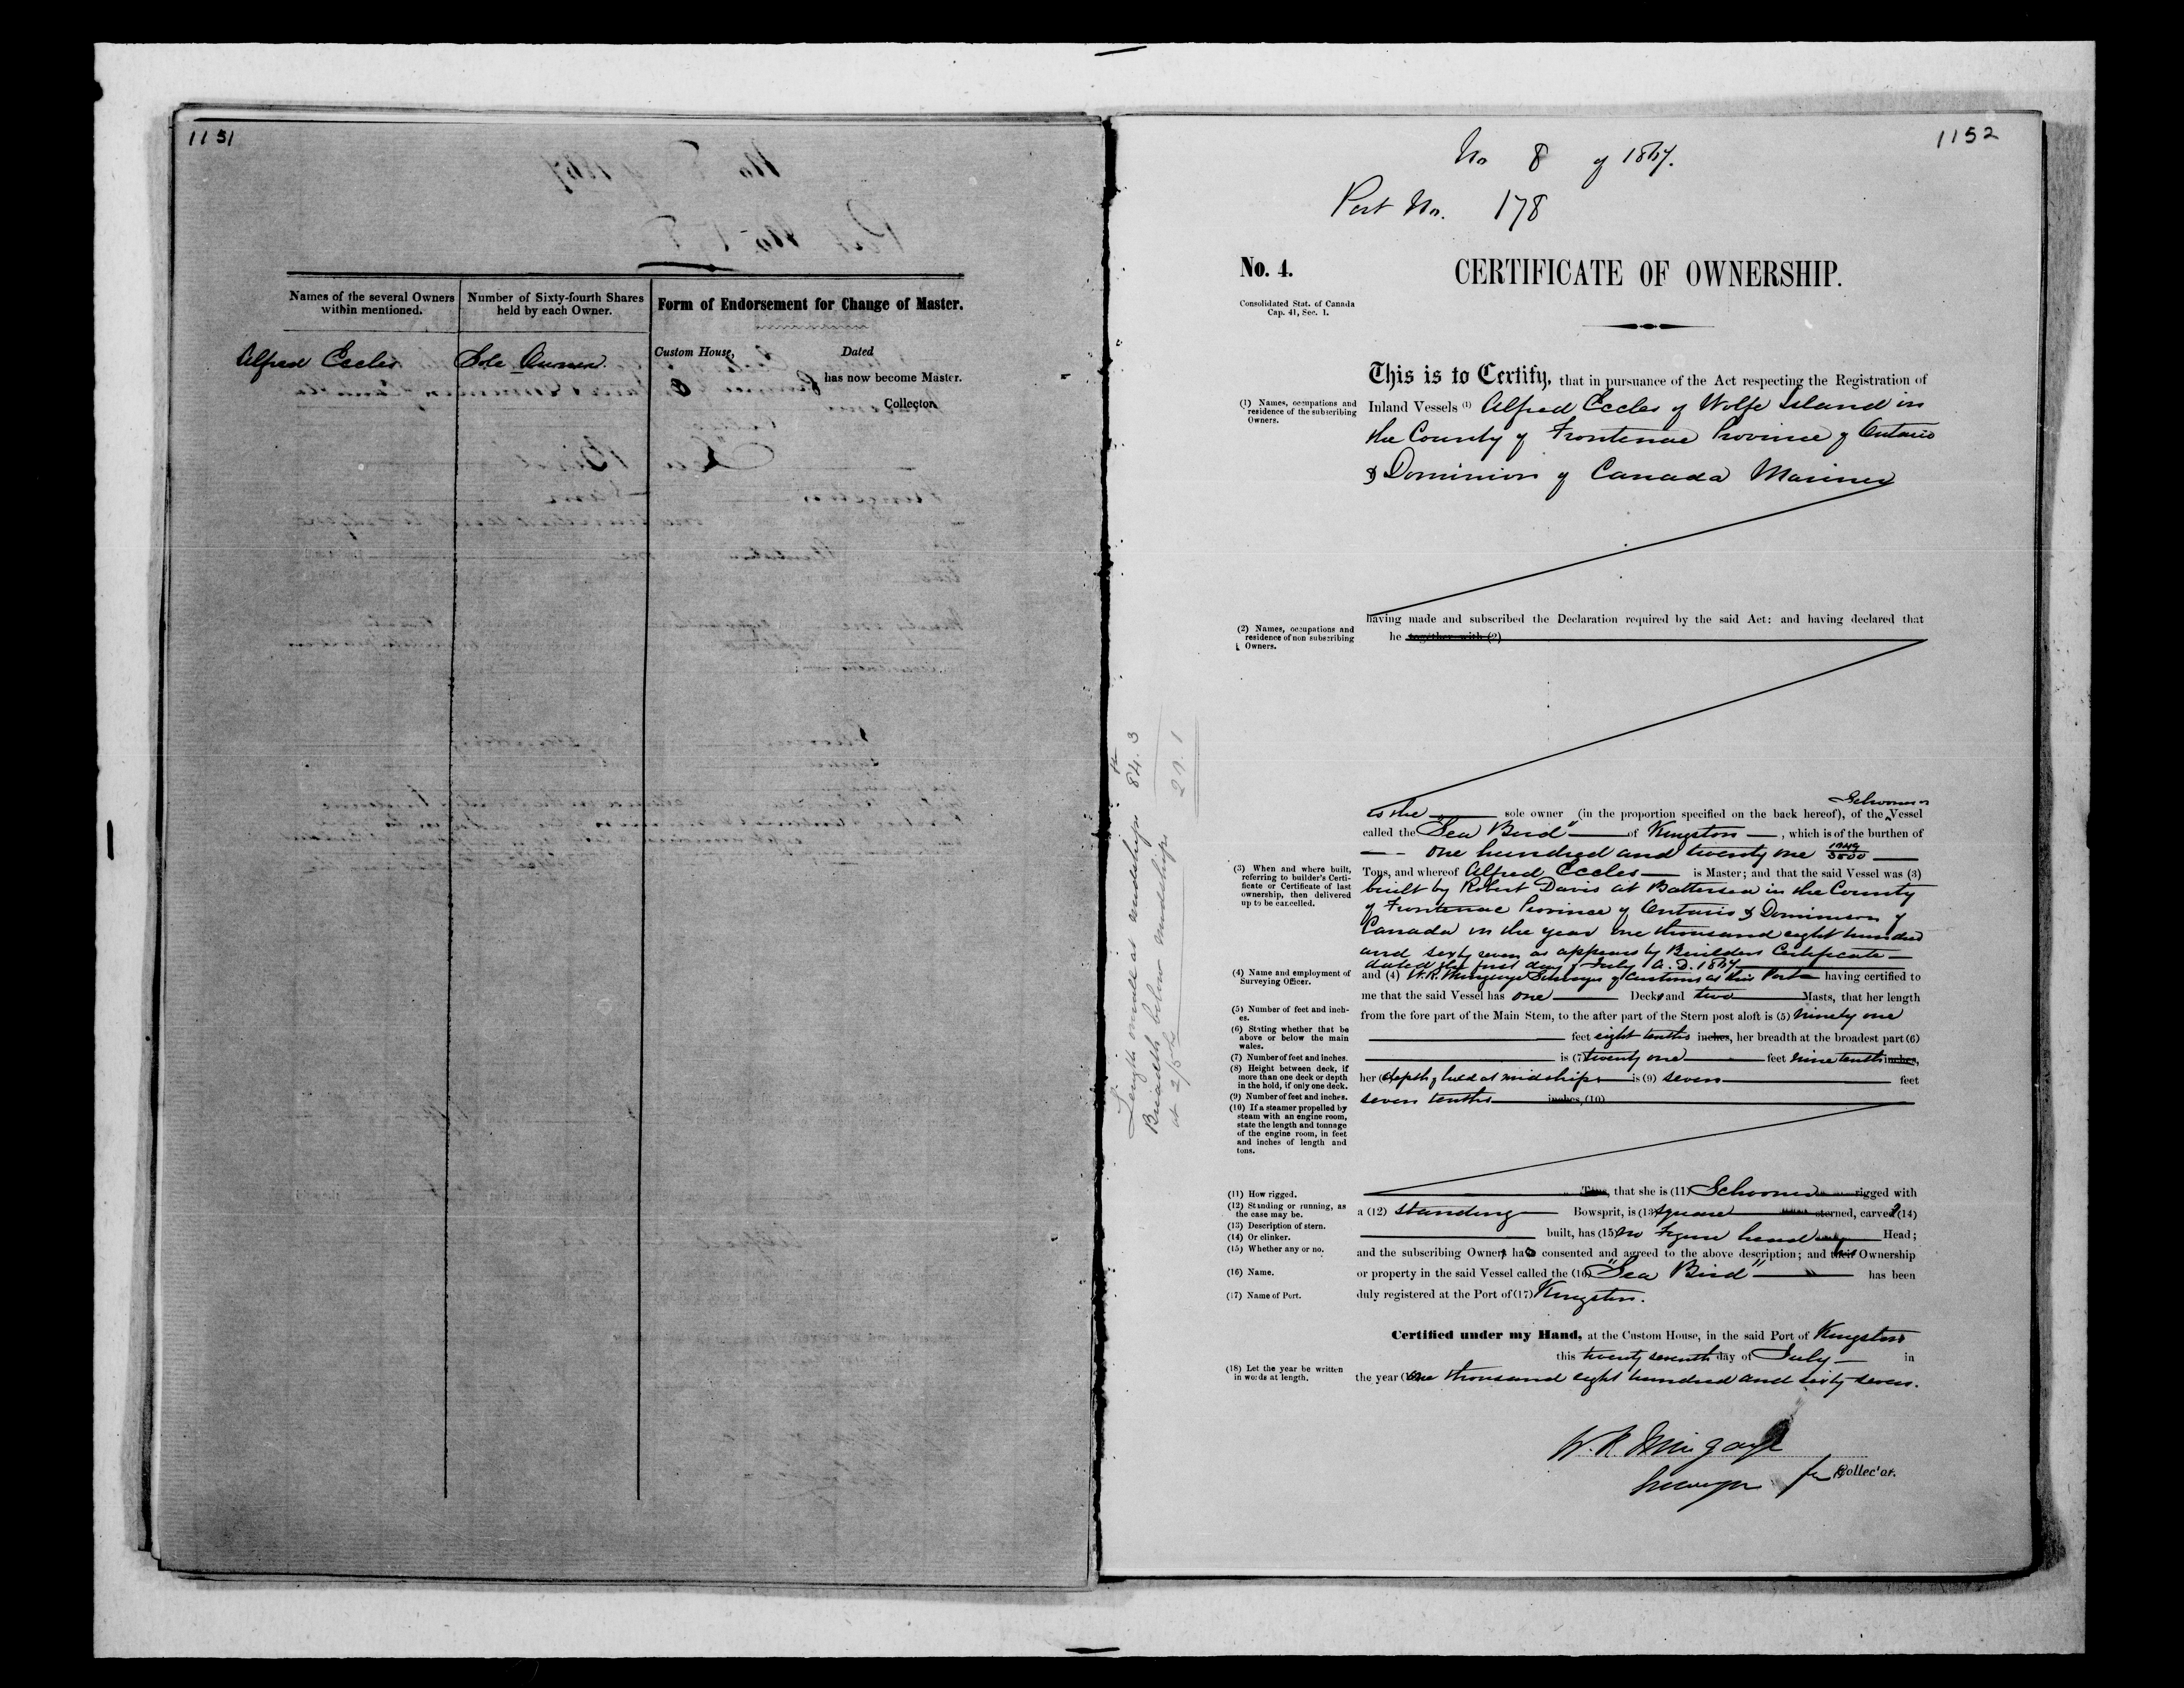 1151
Names of the several Owners within mentioned.
Number of Sixty-fourth Shares held by each Owner.
Form of Endorsement for Change of Master.
Alfred Eccles
Sole Owner
Custom House,
Dated
has now become Master.
Collector
1152
No 8 of 1867.
Port No. 178
No. 4.
CERTIFICATE OF OWNERSHIP.
Consolidated Stat. of Canada
Cap. 41, Sec. 1.
This is to Certify, that in pursuance of the Act respecting the Registration of
(1) Names, occupations and
residence of the subscribing
Owners.
Inland Vessels (1) Alfred Eccles of Wolfe Island in
the County of Frontenac Province of Ontario
& Dominion of Canada Mariner
having made and subscribed the Declaration required by the said Act: and having declared that
(2) Names, occupations and
residence of non subscribing
Owners.
he together with (2)
Length inside at midships 84.3
Breadth below midships
at 2/5ths
20.1
Schooner
is the sole owner (in the proportion specified on the back hereof), of the Vessel
called the "Sea Bird" of Kingston, which is of the burthen of
one hundred and twenty one
(3) When and where built,
referring to builder's Certi-
ficate or Certificate of last
ownership, then delivered
up to be cancelled.
Tons, and whereof Alfred Eccles is Master; and that the said Vessel was (3)
built by Robert Davis at Battersea in the County
of Frontenac Province of Ontario & Dominion of
Canada in the year one thousand eight hundred
and sixty seven as appears by Builders Certificate
dated the first day of July A.D. 1867
(4) Name and employment of
Surveying Officer.
and (4) W.R. Mingaye Surveyor of Customs at this Port having certified to
me that the said Vessel has one Deck and two Masts, that her length
(5) Number of feet and inch-
es.
from the fore part of the Main Stem, to the after part of the Stern post aloft is (5) ninety one
(6) Stating whether that be
above or below the main
wales.
feet eight tenths inches, her breadth at the broadest part (6)
(7) Number of feet and inches.
is (7) twenty one feet nine tenths inches,
(8) Height between deck, if
more than one deck or depth
in the hold, if only one deck.
her (8) depth of hold at midships is (9) seven feet
(9) Number of feet and inches.
seven tenths inches, (10)
(10) If a steamer propelled by
steam with an engine room,
state the length and tonnage
of the engine room, in feet
and inches of length and
tons.
(11) How rigged.
Tons, that she is (11) Schooner rigged with
(12) Standing or running, as
the case may be.
a (12) standing Bowsprit, is (13) square sterned, carvel (14)
(13) Description of stern.
(14) Or clinker.
built, has (15) no Figure head Head;
(15) Whether any or no.
and the subscribing Owner has consented and agreed to the above description; and his Ownership
(16) Name.
or property in the said Vessel called the (16) "Sea Bird" has been
(17) Name of Port.
duly registered at the Port of (17) Kingston.
Certified under my Hand, at the Custom House, in the said Port of Kingston
this twenty seventh day of July in
(18) Let the year be written
in words at length.
the year one thousand eight hundred and sixty seven.
W. R. Mingaye
Surveyor for Collector.